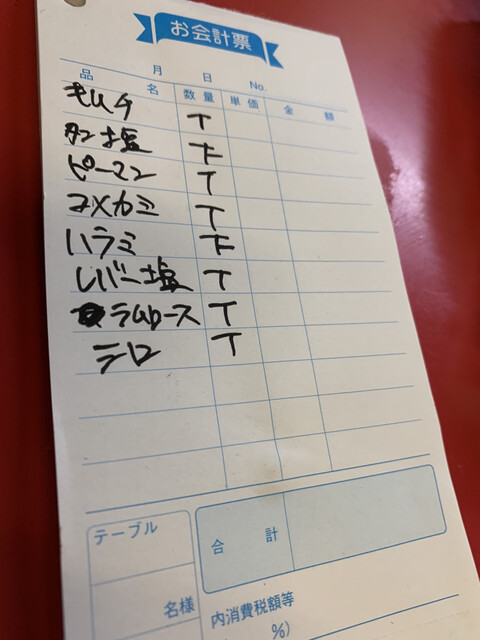 お会計票
月 日 No.
品名 数量 単価 金額
キムチ T
タン塩 下
ピーマン T
コメカミ T
ハラミ 下
レバー塩 T
ラムロース T
テロ T
テーブル
名様
合計
内消費税額等
%)